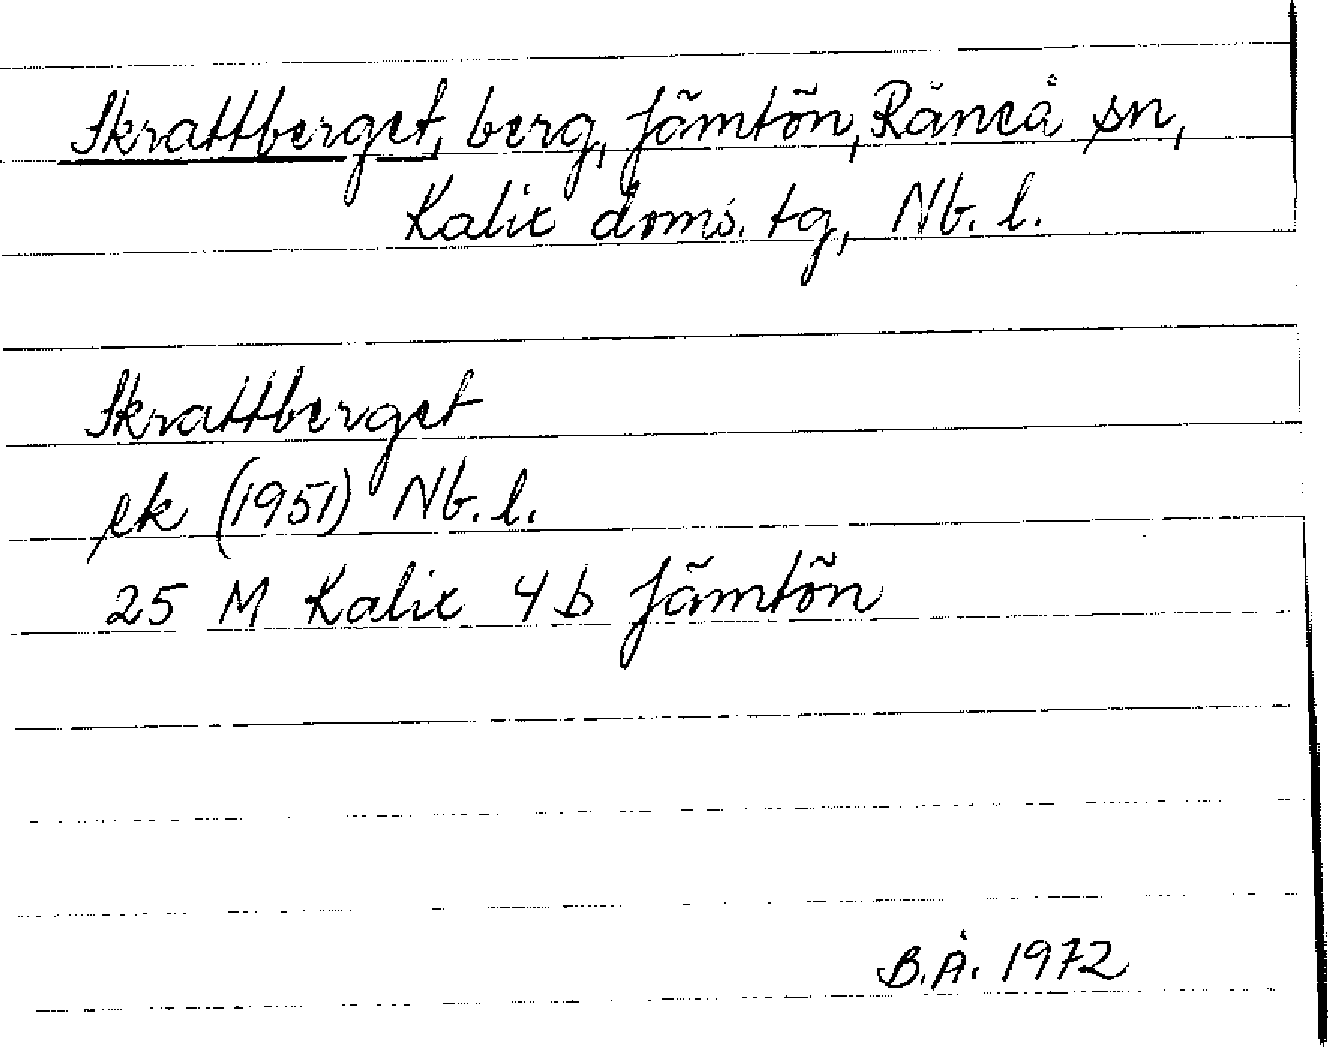 Skrattberget, berg, Jämtön, Råneå sn,
Kalix doms. tg, Nb. l.
Skrattberget
ek (1951) Nb. l.
25 M Kalix 4 b Jämtön
B.Å. 1972